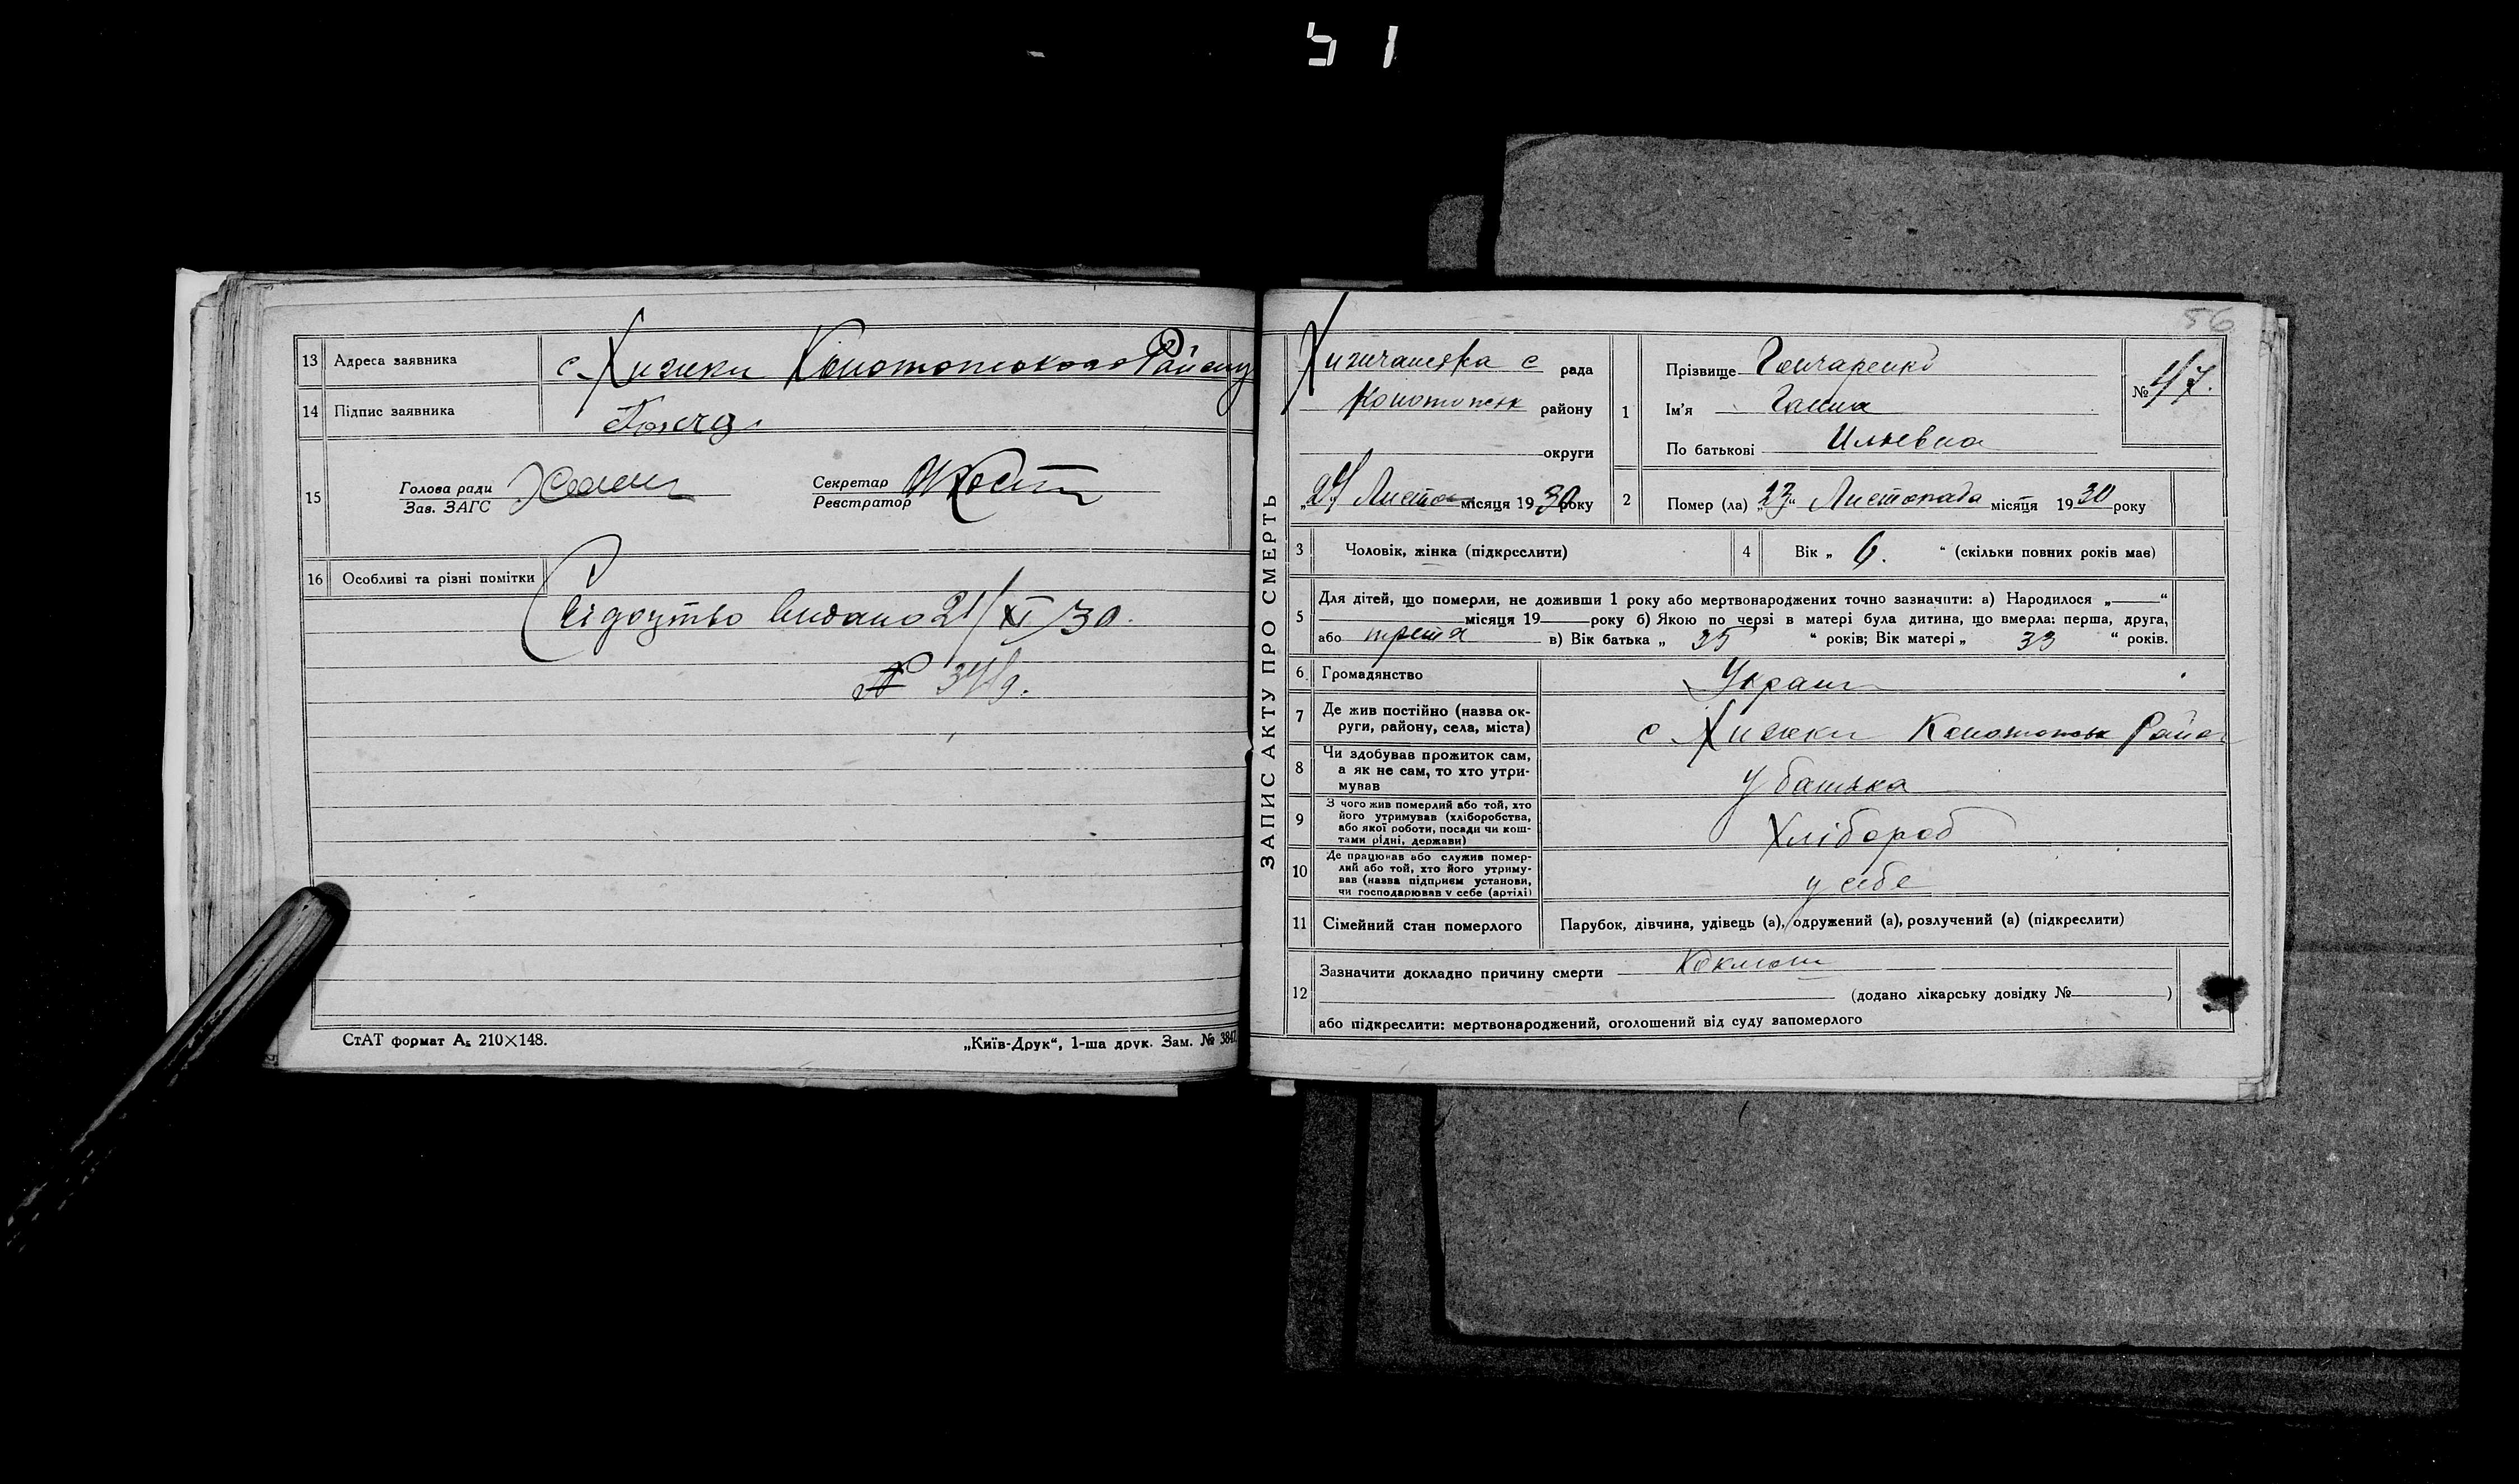 51
13 Адреса заявника с. Хижки Конотопського Району
14 Підпис заявника
15 Голова ради
Зав. ЗАГС
Секретар
Реєстратор
16 Особливі та різні помітки
видано 21/XI 30.
№ 34/9.
СтАТ формат А5 210×148.
„Київ-Друк“, 1-ша друк. Зам. № 3847
56
ЗАПИС АКТУ ПРО СМЕРТЬ
с рада
Конотопськ району
округи
„24 Листоп місяця 1930 року
1 Прізвище Гончаренко
Ім'я Ганна
По батькові Ильевна
№ 47.
2 Помер (ла) „23“ Листопада місяця 1930 року
3 Чоловік, жінка (підкреслити)
4 Вік „ 6. “ (скільки повних років має)
5 Для дітей, що померли, не доживши 1 року або мертвонароджених точно зазначити: а) Народилося „ “
місяця 19 року б) Якою по черзі в матері була дитина, що вмерла: перша, друга,
або третя в) Вік батька „ 35 “ років; Вік матері „ 33 “ років.
6 Громадянство Украін
7 Де жив постійно (назва ок-
руги, району, села, міста) с Хижки Конотопськ Район
8 Чи здобував прожиток сам,
а як не сам, то хто утри-
мував у батька
9 З чого жив померлий або той, хто
його утримував (хліборобства,
або якої роботи, посади чи кош-
тами рідні, держави) Хлібороб
10 Де працював або служив помер-
лий або той, хто його утриму-
вав (назва підприєм установи,
чи господарював у себе (артілі) у себе
11 Сімейний стан померлого Парубок, дівчина, удівець (а), одружений (а), розлучений (а) (підкреслити)
12 Зазначити докладно причину смерти
(додано лікарську довідку № )
або підкреслити: мертвонароджений, оголошений від суду запомерлого